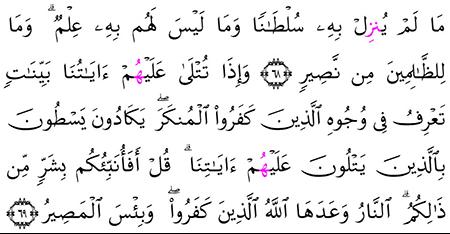 مَا لَمْ يُنزِلْ بِهِۦ سُلْطَٰنًا وَمَا لَيْسَ لَهُم بِهِۦ عِلْمٌ ۗ وَمَا
لِلظَّٰلِمِينَ مِن نَّصِيرٍ ۝٦٨ وَإِذَا تُتْلَىٰ عَلَيْهُمْ ءَايَٰتُنَا بَيِّنَٰتٍ
تَعْرِفُ فِى وُجُوهِ الَّذِينَ كَفَرُوا۟ الْمُنكَرَ ۖ يَكَادُونَ يَسْطُونَ
بِالَّذِينَ يَتْلُونَ عَلَيْهُمْ ءَايَٰتِنَا ۗ قُلْ أَفَأُنَبِّئُكُم بِشَرٍّ مِّن
ذَٰلِكُمُ ۗ النَّارُ وَعَدَهَا اللَّهُ الَّذِينَ كَفَرُوا۟ ۖ وَبِئْسَ الْمَصِيرُ ۝٦٩